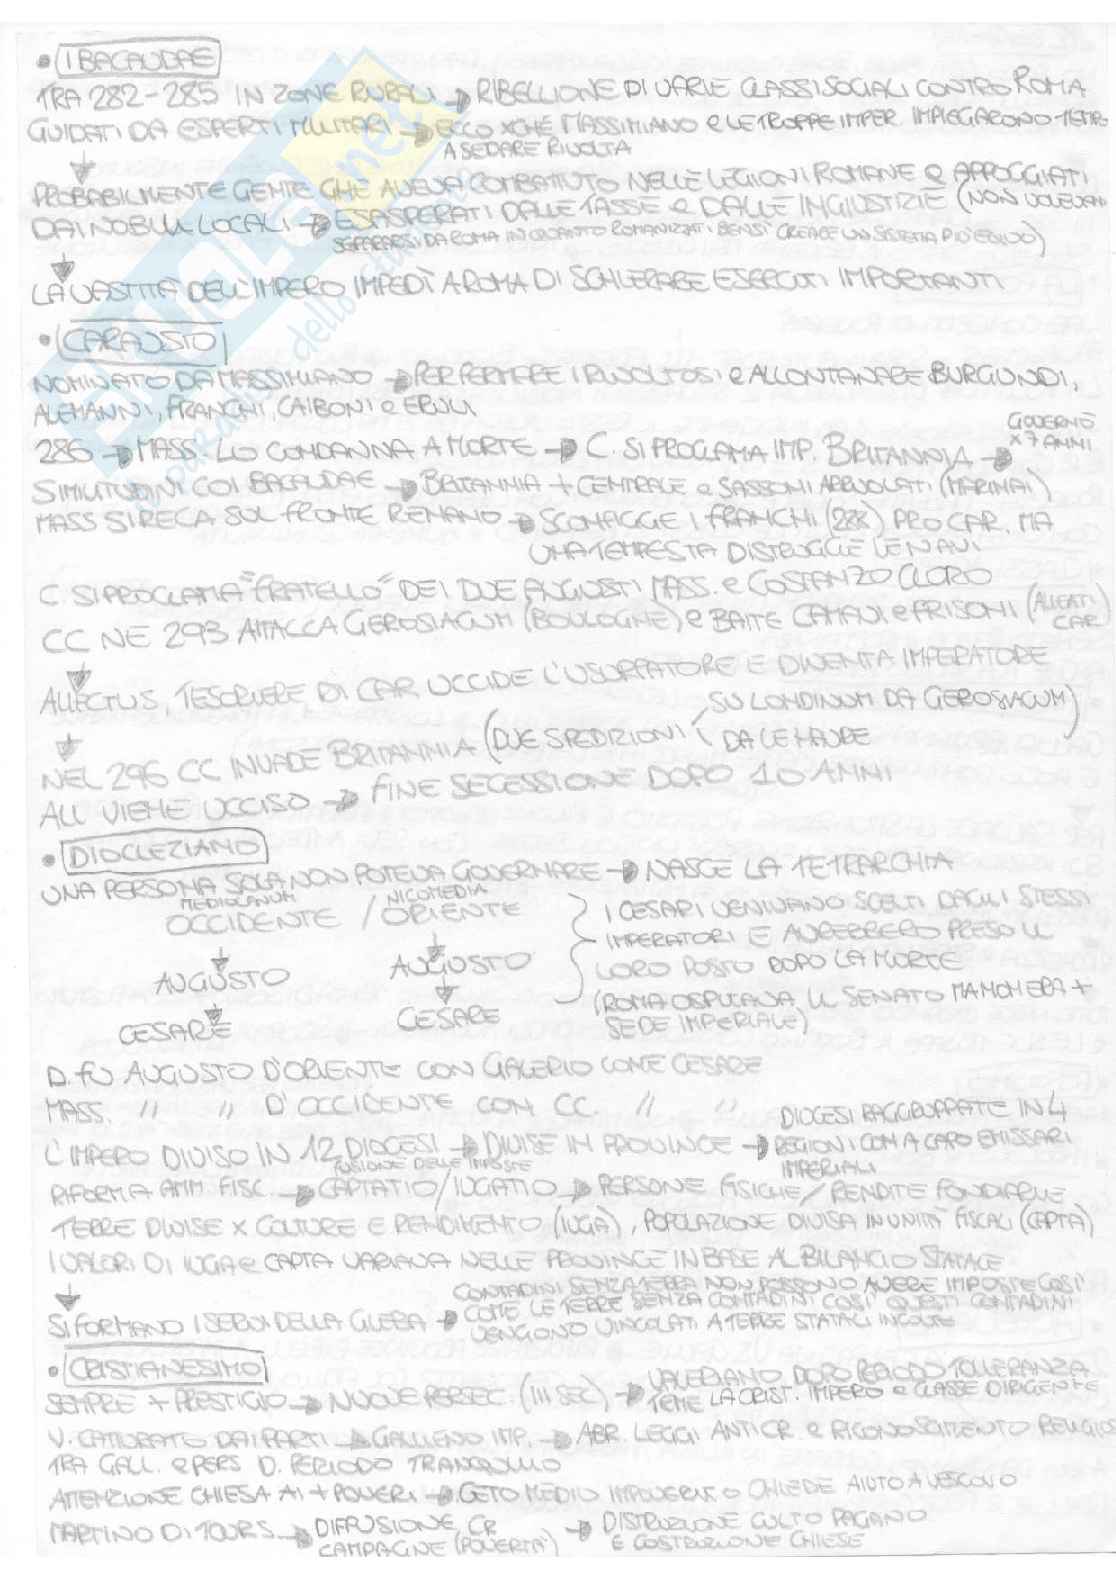 • I BACAUDAE
TRA 282-285 IN ZONE RURALI → RIBELLIONE DI VARIE CLASSI SOCIALI CONTRO ROMA
GUIDATI DA ESPERTI MILITARI → ECCO XCHÉ MASSIMIANO E LE TROPPE IMPER. IMPIEGARONO TEMPO
A SEDARE RIVOLTA
↓
PROBABILMENTE GENTE CHE AVEVA COMBATTUTO NELLE LEGIONI ROMANE E APPOGGIATI
DAI NOBILI LOCALI → ESASPERATI DALLE TASSE E DALLE INGIUSTIZIE (NON VOLEVANO
SEPARARSI DA ROMA IN QUANTO ROMANIZZATI BENSÌ CREARE UN SISTEMA PIÙ EQUO)
↓
LA VASTITÀ DELL'IMPERO IMPEDÌ A ROMA DI SCHIERARE ESERCITI IMPORTANTI
• CARAUSIO
NOMINATO DA MASSIMIANO → PER FERMARE I RIVOLTOSI E ALLONTANARE BURGUNDI,
ALEMANNI, FRANCHI, CAIBONI E ERULI
286 → MASS. LO CONDANNA A MORTE → C. SI PROCLAMA IMP. BRITANNIA → GOVERNÒ
X 7 ANNI
SIMILITUDINI COI BACAUDAE → BRITANNIA + CENTRALE E SASSONI ARRUOLATI (MARINAI)
MASS SI RECA SUL FRONTE RENANO → SCONFIGGE I FRANCHI (288) PRO CAR. MA
UNA TEMPESTA DISTRUGGE LE NAVI
C. SI PROCLAMA "FRATELLO" DEI DUE AUGUSTI MASS. E COSTANZO CLORO
CC NE 293 ATTACCA GEROSIACUM (BOULOGNE) E BATTE CAMAVI E FRISONI (ALLEATI
CAR)
↓
ALLECTUS, TESORIERE DI CAR UCCIDE L'USURPATORE E DIVENTA IMPERATORE
↓
NEL 296 CC INVADE BRITANNIA (DUE SPEDIZIONI SU LONDINUM DA GEROSIACUM)
DA LE HAVRE
ALL VIENE UCCISO → FINE SECESSIONE DOPO 10 ANNI
• DIOCLEZIANO
UNA PERSONA SOLA NON POTEVA GOVERNARE → NASCE LA TETRARCHIA
MEDIOLANUM NICOMEDIA
OCCIDENTE / ORIENTE
↓ ↓
AUGUSTO AUGUSTO
↓ ↓
CESARE CESARE
I CESARI VENIVANO SCELTI DAGLI STESSI
IMPERATORI E AVREBBERO PRESO IL
LORO POSTO DOPO LA MORTE
(ROMA OSPITAVA IL SENATO MA NON ERA +
SEDE IMPERIALE)
D. FU AUGUSTO D'ORIENTE CON GALERIO COME CESARE
MASS. // // D'OCCIDENTE CON CC. // //
L'IMPERO DIVISO IN 12 DIOCESI → DIVISE IN PROVINCE → DIOCESI RAGGRUPPATE IN 4
REGIONI CON A CAPO EMISSARI
IMPERIALI
FUSIONE DELLE IMPOSTE
RIFORMA AMM FISC. → CAPTATIO/IUGATIO → PERSONE FISICHE/RENDITE FONDIARIE
TERRE DIVISE X COLTURE E RENDIMENTO (IUGA), POPOLAZIONE DIVISA IN UNITÀ FISCALI (CAPTA)
I VALORI DI IUGA E CAPTA VARIAVA NELLE PROVINCE IN BASE AL BILANCIO STATALE
↓
SI FORMANO I SERVI DELLA GLEBA → CONTADINI SENZA TERRA NON POSSONO AVERE IMPOSTE COSÌ
COME LE TERRE SENZA CONTADINI COSÌ QUESTI CONTADINI
VENGONO VINCOLATI A TERRE STATALI INCOLTE
• CRISTIANESIMO
SEMPRE + PRESTIGIO → NUOVE PERSEC. (III SEC) → VALERIANO DOPO PERIODO TOLLERANZA
TEME LA CRIST. IMPERO E CLASSE DIRIGENTE
V. CATTURATO DAI PARTI → GALLIENO IMP. → ABR. LEGGI ANTI CR. E RICONOSCIMENTO RELIGIO
TRA GALL. E PERS D. PERIODO TRANQUILLO
ATTENZIONE CHIESA AI + POVERI → CETO MEDIO IMPOVERITO CHIEDE AIUTO A VESCOVO
MARTINO DI TOURS → DIFFUSIONE CR
CAMPAGNE (POVERTÀ) → DISTRUZIONE CULTO PAGANO
E COSTRUZIONE CHIESE